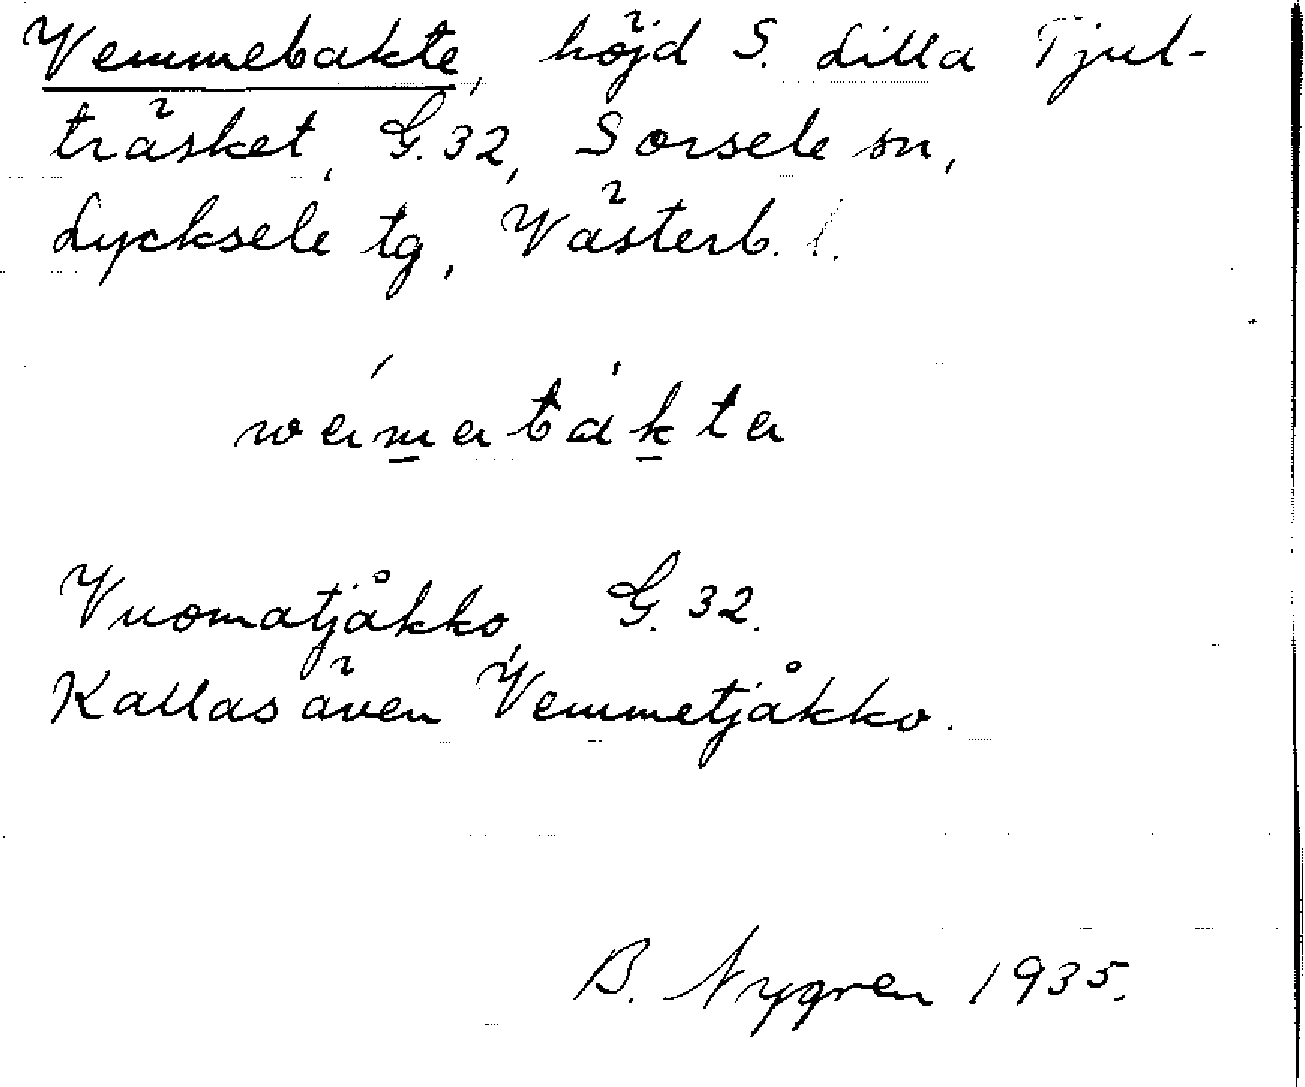 Vemmebakte, höjd S. Lilla Tjul-
träsket, G.32, Sorsele sn,
Lycksele tg, Västerb. l.
Vuomatjåkko, G. 32.
Kallas även Vemmetjåkko.
B. Nygren 1935.